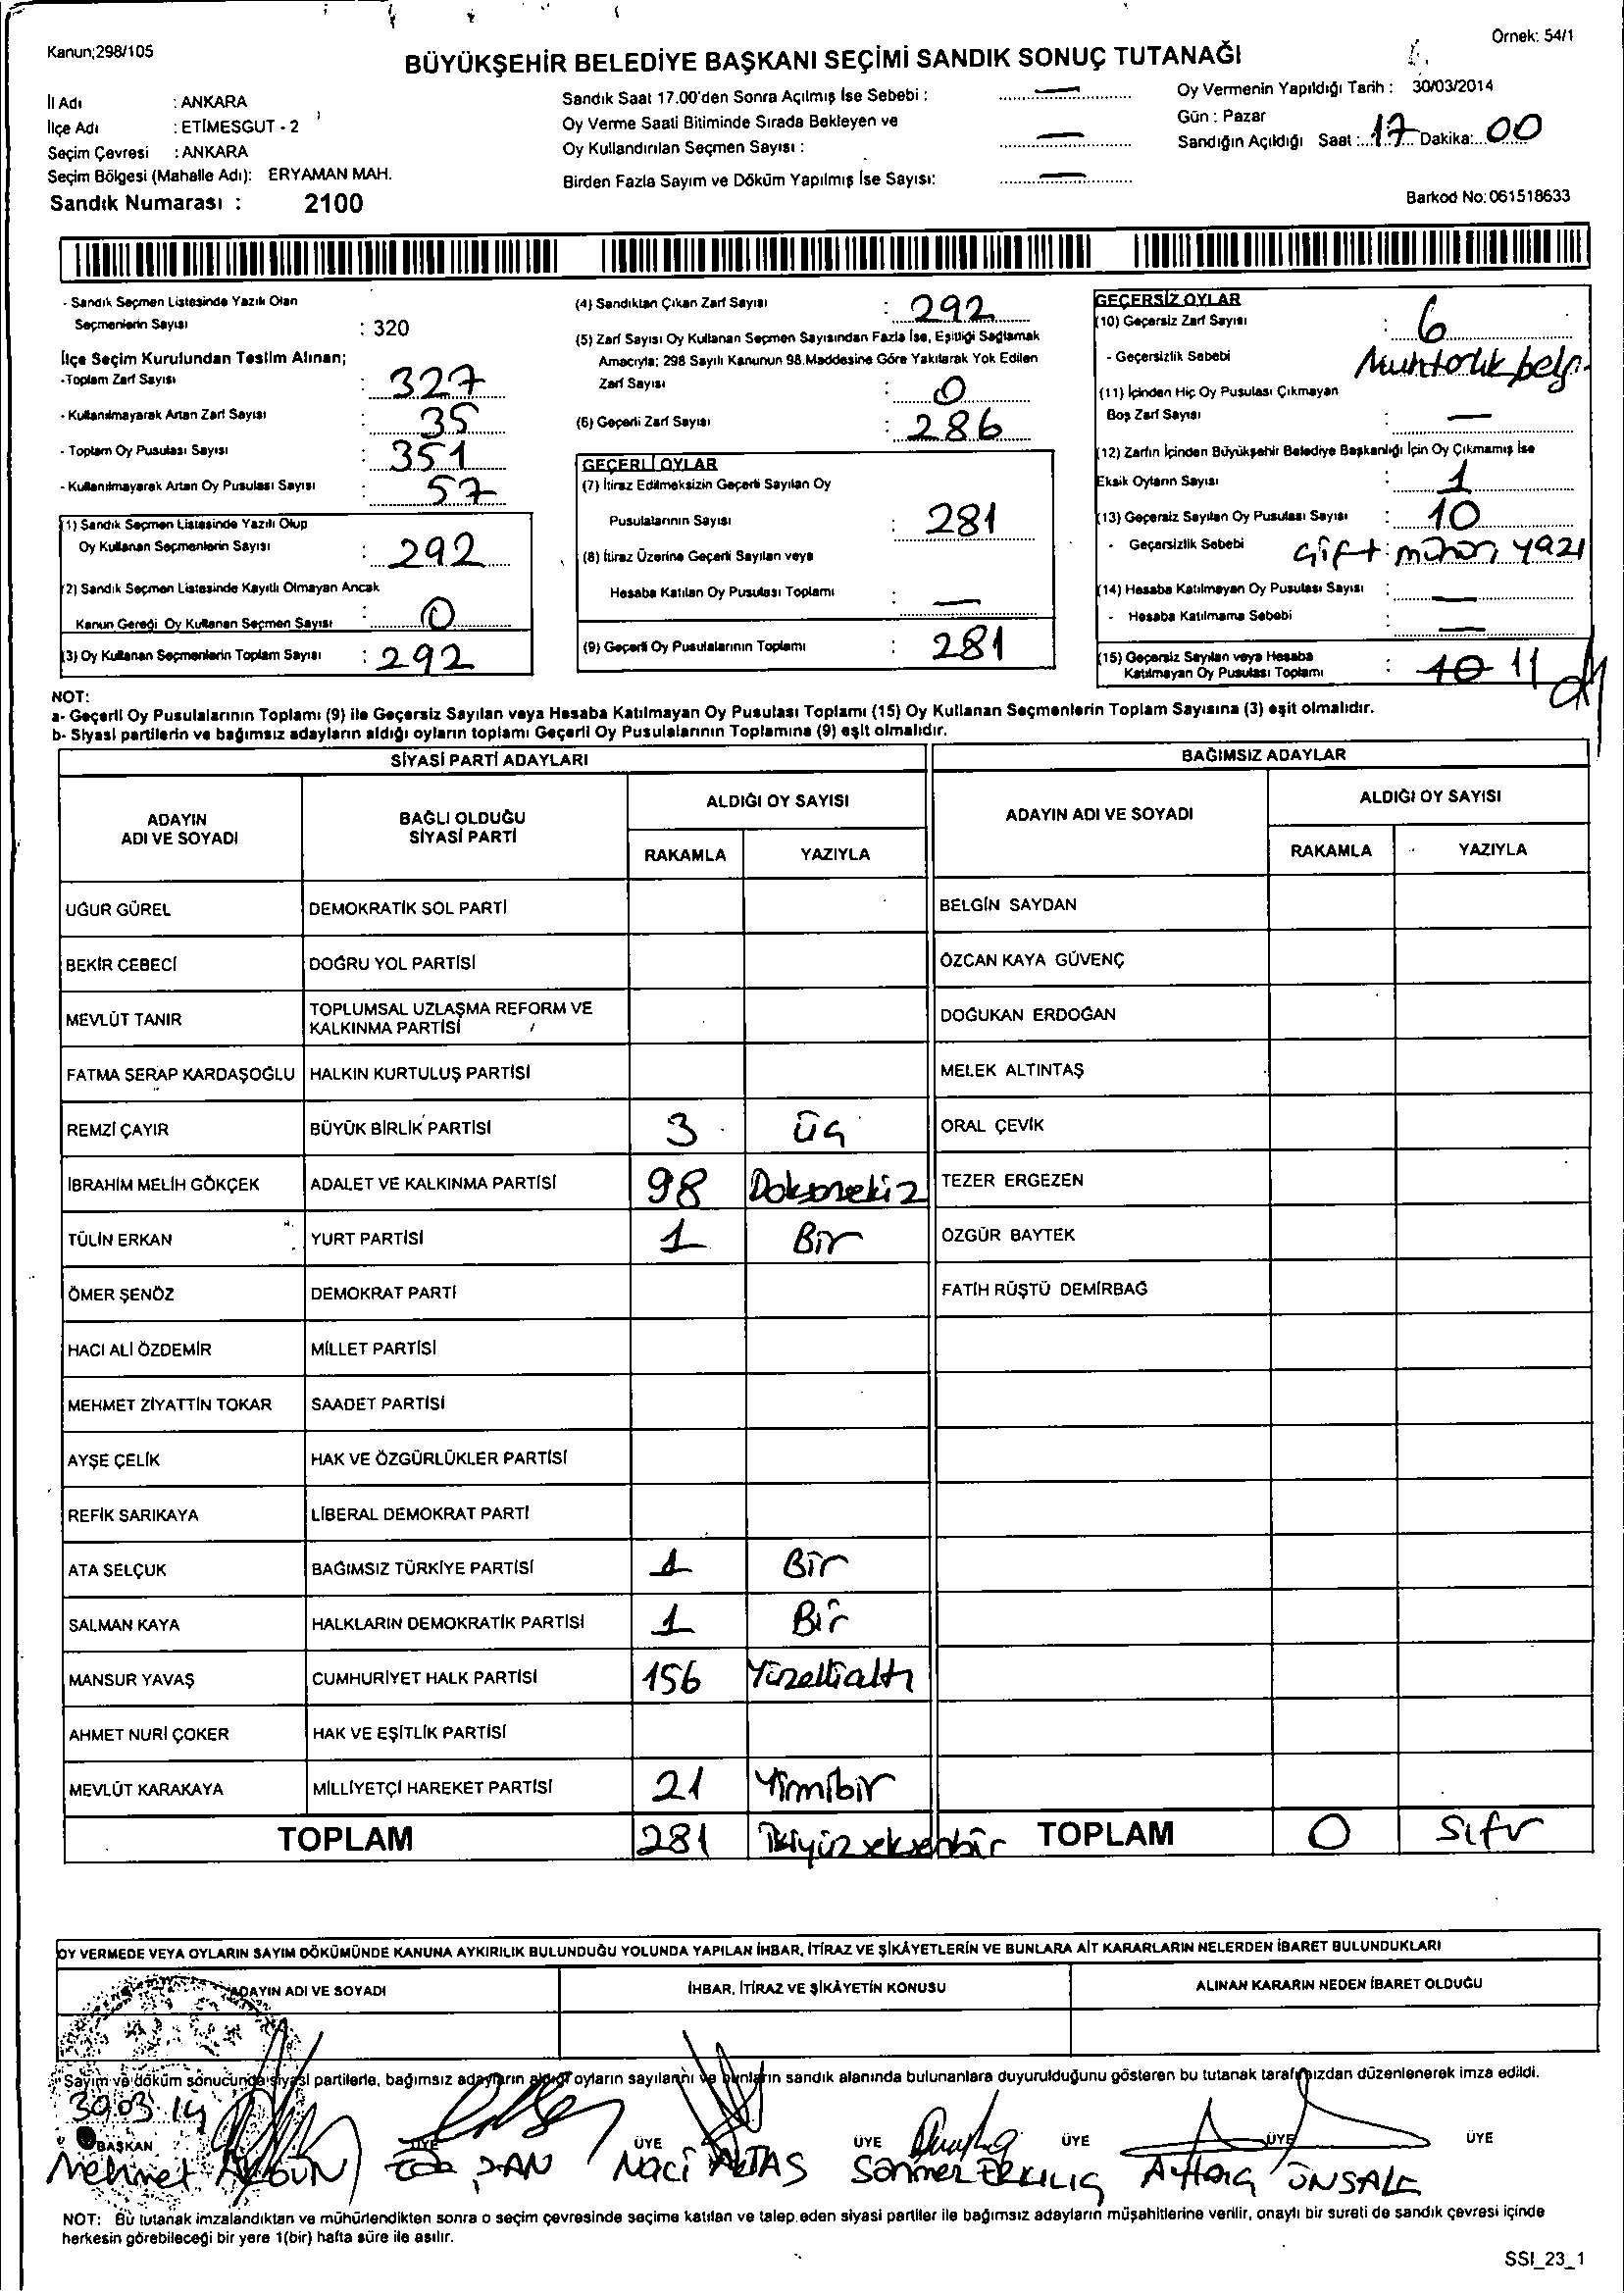 Kanun;298/105
Örnek: 54/1
BÜYÜKŞEHİR BELEDİYE BAŞKANI SEÇİMİ SANDIK SONUÇ TUTANAĞI
İl Adı : ANKARA
İlçe Adı : ETİMESGUT - 2
Seçim Çevresi : ANKARA
Seçim Bölgesi (Mahalle Adı): ERYAMAN MAH.
Sandık Numarası : 2100
Sandık Saat 17.00'den Sonra Açılmış İse Sebebi : —
Oy Verme Saati Bitiminde Sırada Bekleyen ve
Oy Kullandırılan Seçmen Sayısı : —
Birden Fazla Sayım ve Döküm Yapılmış İse Sayısı: —
Oy Vermenin Yapıldığı Tarih : 30/03/2014
Gün : Pazar
Sandığın Açıldığı Saat : 17 Dakika: 00
Barkod No: 061518633
- Sandık Seçmen Listesinde Yazılı Olan
Seçmenlerin Sayısı : 320
İlçe Seçim Kurulundan Teslim Alınan;
-Toplam Zarf Sayısı : 327
- Kullanılmayarak Artan Zarf Sayısı : 35
- Toplam Oy Pusulası Sayısı : 351
- Kullanılmayarak Artan Oy Pusulası Sayısı : 57
(1) Sandık Seçmen Listesinde Yazılı Olup
Oy Kullanan Seçmenlerin Sayısı : 292
(2) Sandık Seçmen Listesinde Kayıtlı Olmayan Ancak
Kanun Gereği Oy Kullanan Seçmen Sayısı : 0
(3) Oy Kullanan Seçmenlerin Toplam Sayısı : 292
(4) Sandıktan Çıkan Zarf Sayısı : 292
(5) Zarf Sayısı Oy Kullanan Seçmen Sayısından Fazla İse, Eşitliği Sağlamak
Amacıyla; 298 Sayılı Kanunun 98.Maddesine Göre Yakılarak Yok Edilen
Zarf Sayısı : 0
(6) Geçerli Zarf Sayısı : 286
GEÇERLİ OYLAR
(7) İtiraz Edilmeksizin Geçerli Sayılan Oy
Pusulalarının Sayısı : 281
(8) İtiraz Üzerine Geçerli Sayılan veya
Hesaba Katılan Oy Pusulası Toplamı : —
(9) Geçerli Oy Pusulalarının Toplamı : 281
GEÇERSİZ OYLAR
(10) Geçersiz Zarf Sayısı : 6
- Geçersizlik Sebebi Muhtarlık belg.
(11) İçinden Hiç Oy Pusulası Çıkmayan
Boş Zarf Sayısı : —
(12) Zarfın İçinden Büyükşehir Belediye Başkanlığı İçin Oy Çıkmamış İse
Eksik Oyların Sayısı : 1
(13) Geçersiz Sayılan Oy Pusulası Sayısı : 10
- Geçersizlik Sebebi Çift mühür, yazı
(14) Hesaba Katılmayan Oy Pusulası Sayısı : —
- Hesaba Katılmama Sebebi : —
(15) Geçersiz Sayılan veya Hesaba
Katılmayan Oy Pusulası Toplamı : 10 11
NOT:
a- Geçerli Oy Pusulalarının Toplamı (9) ile Geçersiz Sayılan veya Hesaba Katılmayan Oy Pusulası Toplamı (15) Oy Kullanan Seçmenlerin Toplam Sayısına (3) eşit olmalıdır.
b- Siyasi partilerin ve bağımsız adayların aldığı oyların toplamı Geçerli Oy Pusulalarının Toplamına (9) eşit olmalıdır.
SİYASİ PARTİ ADAYLARI
BAĞIMSIZ ADAYLAR
ADAYIN
ADI VE SOYADI
BAĞLI OLDUĞU
SİYASİ PARTİ
ALDIĞI OY SAYISI
RAKAMLA YAZIYLA
ADAYIN ADI VE SOYADI
ALDIĞI OY SAYISI
RAKAMLA YAZIYLA
UĞUR GÜREL DEMOKRATİK SOL PARTİ BELGİN SAYDAN
BEKİR CEBECİ DOĞRU YOL PARTİSİ ÖZCAN KAYA GÜVENÇ
MEVLÜT TANIR TOPLUMSAL UZLAŞMA REFORM VE
KALKINMA PARTİSİ DOĞUKAN ERDOĞAN
FATMA SERAP KARDAŞOĞLU HALKIN KURTULUŞ PARTİSİ MELEK ALTINTAŞ
REMZİ ÇAYIR BÜYÜK BİRLİK PARTİSİ 3 üç ORAL ÇEVİK
İBRAHİM MELİH GÖKÇEK ADALET VE KALKINMA PARTİSİ 98 Doksansekiz TEZER ERGEZEN
TÜLİN ERKAN YURT PARTİSİ 1 Bir ÖZGÜR BAYTEK
ÖMER ŞENÖZ DEMOKRAT PARTİ FATİH RÜŞTÜ DEMİRBAĞ
HACI ALİ ÖZDEMİR MİLLET PARTİSİ
MEHMET ZİYATTİN TOKAR SAADET PARTİSİ
AYŞE ÇELİK HAK VE ÖZGÜRLÜKLER PARTİSİ
REFİK SARIKAYA LİBERAL DEMOKRAT PARTİ
ATA SELÇUK BAĞIMSIZ TÜRKİYE PARTİSİ 1 Bir
SALMAN KAYA HALKLARIN DEMOKRATİK PARTİSİ 1 Bir
MANSUR YAVAŞ CUMHURİYET HALK PARTİSİ 156 Yüzellialtı
AHMET NURİ ÇOKER HAK VE EŞİTLİK PARTİSİ
MEVLÜT KARAKAYA MİLLİYETÇİ HAREKET PARTİSİ 21 Yirmibir
TOPLAM 281 İkiyüzseksenbir TOPLAM 0 Sıfır
OY VERMEDE VEYA OYLARIN SAYIM DÖKÜMÜNDE KANUNA AYKIRILIK BULUNDUĞU YOLUNDA YAPILAN İHBAR, İTİRAZ VE ŞİKÂYETLERİN VE BUNLARA AİT KARARLARIN NELERDEN İBARET BULUNDUKLARI
ADAYIN ADI VE SOYADI İHBAR, İTİRAZ VE ŞİKÂYETİN KONUSU ALINAN KARARIN NEDEN İBARET OLDUĞU
Sayım ve döküm sonucunda siyasi partilerle, bağımsız adayların aldığı oyların sayılarını ve bunların sandık alanında bulunanlara duyurulduğunu gösteren bu tutanak tarafımızdan düzenlenerek imza edildi.
30.03.14
BAŞKAN ÜYE ÜYE ÜYE ÜYE ÜYE ÜYE
Mehmet Naci AKTAŞ ÜNSAL
NOT: Bu tutanak imzalandıktan ve mühürlendikten sonra o seçim çevresinde seçime katılan ve talep eden siyasi partiler ile bağımsız adayların müşahitlerine verilir, onaylı bir sureti de sandık çevresi içinde
herkesin görebileceği bir yere 1(bir) hafta süre ile asılır.
SSI_23_1